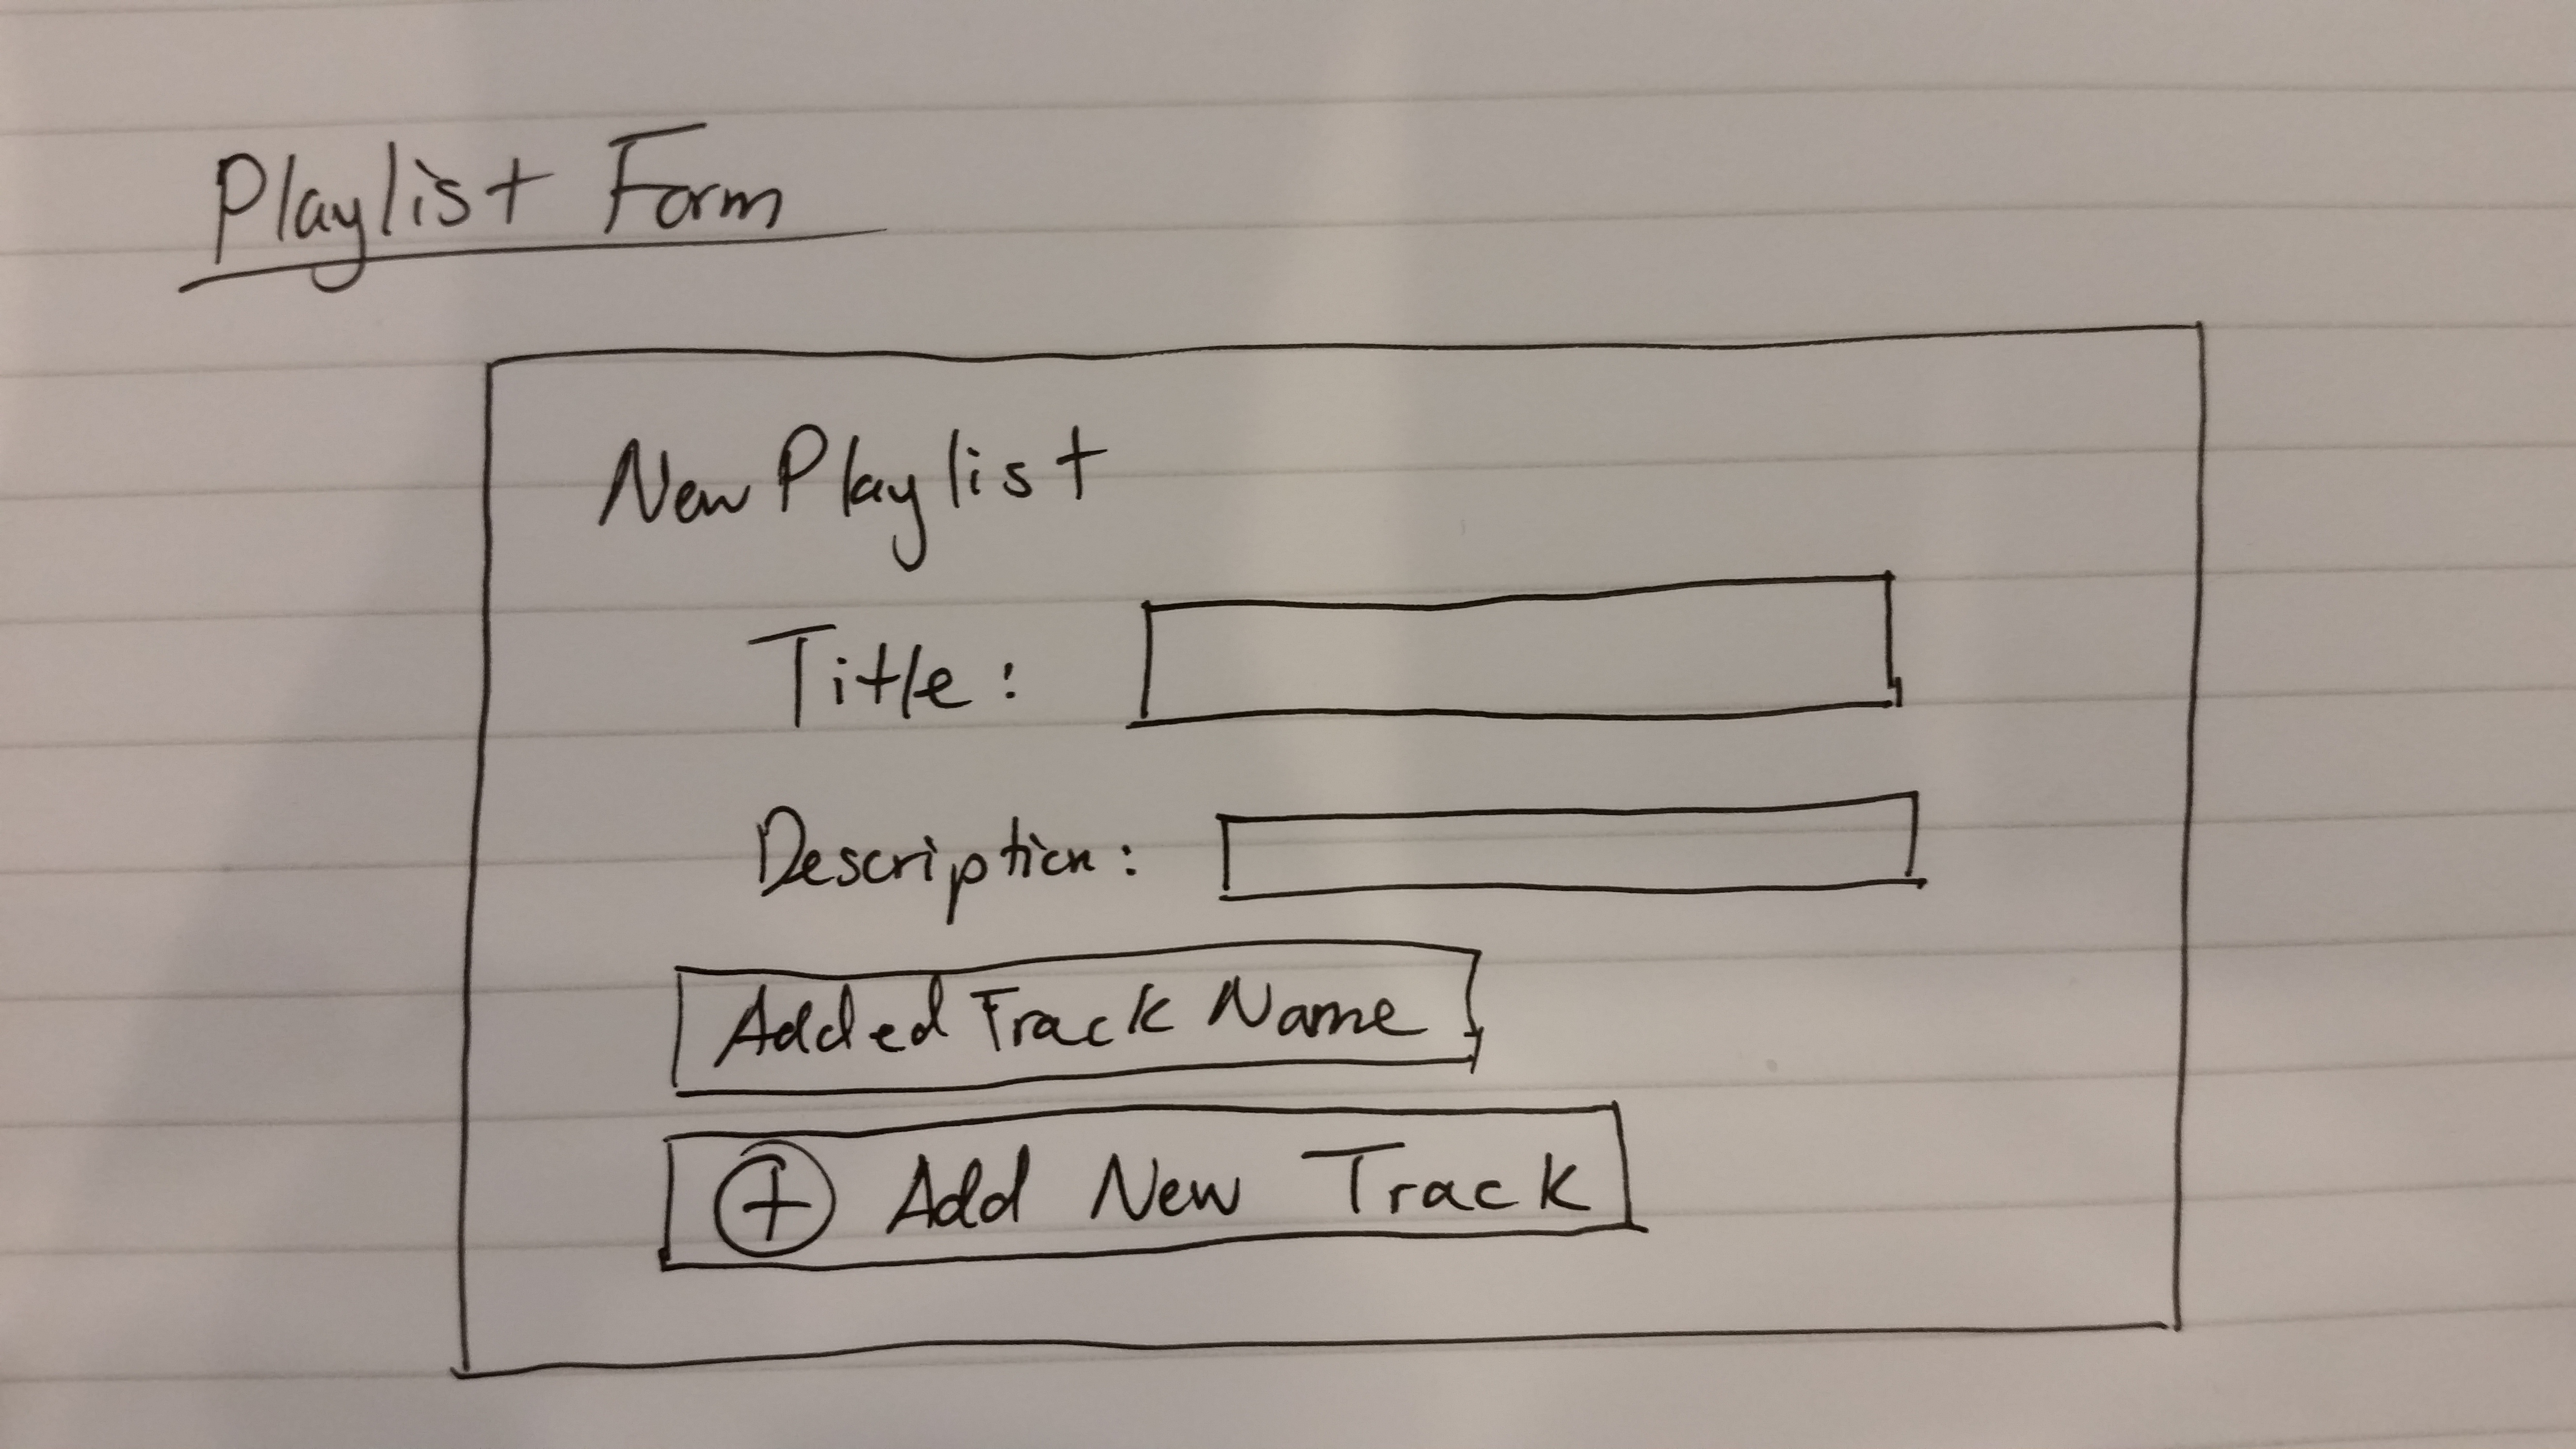 Playlist Form
New Playlist
Title:
Description:
Added Track Name
+ Add New Track